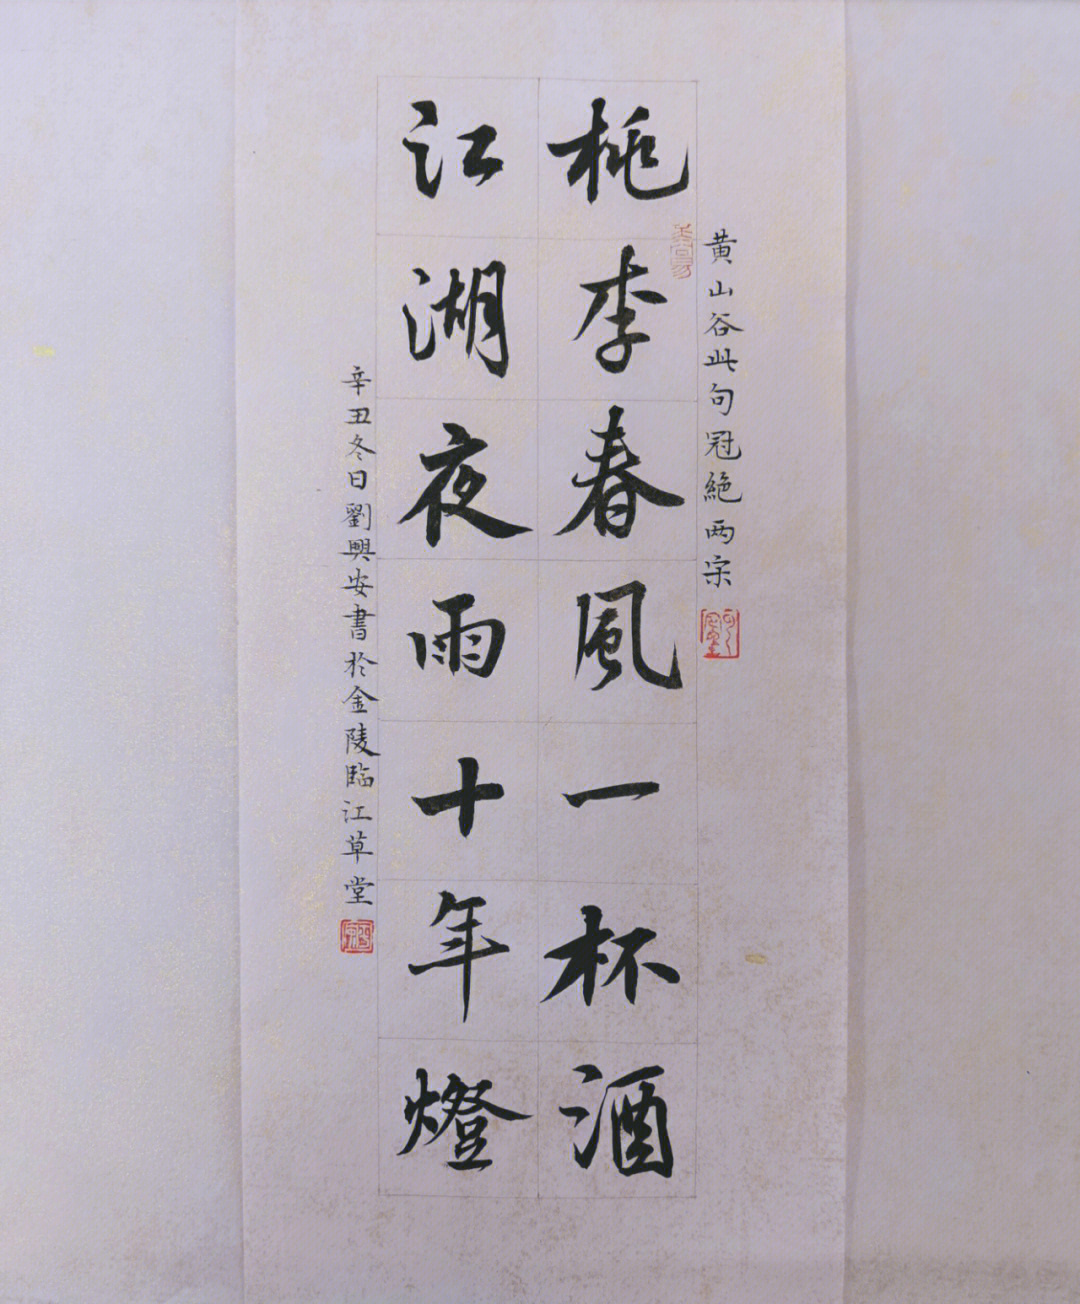 黄山谷此句冠絶两宋
桃李春風一杯酒
江湖夜雨十年燈
辛丑冬日劉興安書於金陵臨江草堂
劉